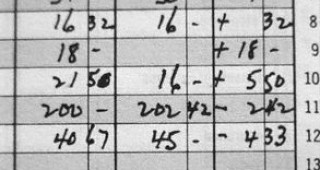 16 32 16 - + 32 8
18 - + 18 - 9
21 50 16 - + 5 50 10
200 - 202 42 - 2 42 11
40 67 45 - - 4 33 12
13